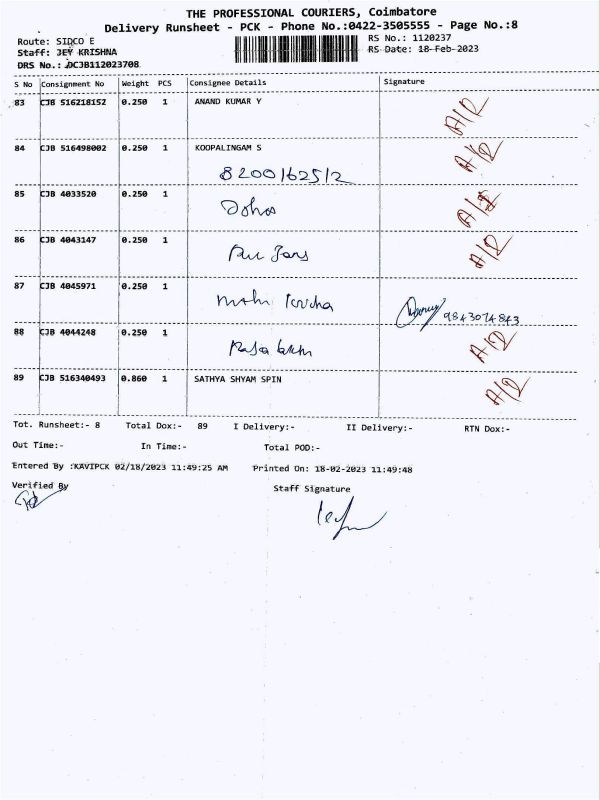 THE PROFESSIONAL COURIERS, Coimbatore
Delivery Runsheet - PCK - Phone No.:0422-3505555 - Page No.:8
Route: SIDCO E
RS No.: 1120237
Staff: JEY KRISHNA
RS Date: 18-Feb-2023
DRS No.: DCJB112023708
S No Consignment No Weight PCS Consignee Details Signature
83 CJB 516218152 0.250 1 ANAND KUMAR Y A/R
84 CJB 516498002 0.250 1 KOOPALINGAM S A/R
8200162512
85 CJB 4033520 0.250 1 A/R
86 CJB 4043147 0.250 1 A/R
87 CJB 4045971 0.250 1
9843074843
88 CJB 4044248 0.250 1 A/R
89 CJB 516340493 0.860 1 SATHYA SHYAM SPIN A/R
Tot. Runsheet:- 8 Total Dox:- 89 I Delivery:- II Delivery:- RTN Dox:-
Out Time:- In Time:- Total POD:-
Entered By :KAVIPCK 02/18/2023 11:49:25 AM Printed On: 18-02-2023 11:49:48
Verified By Staff Signature